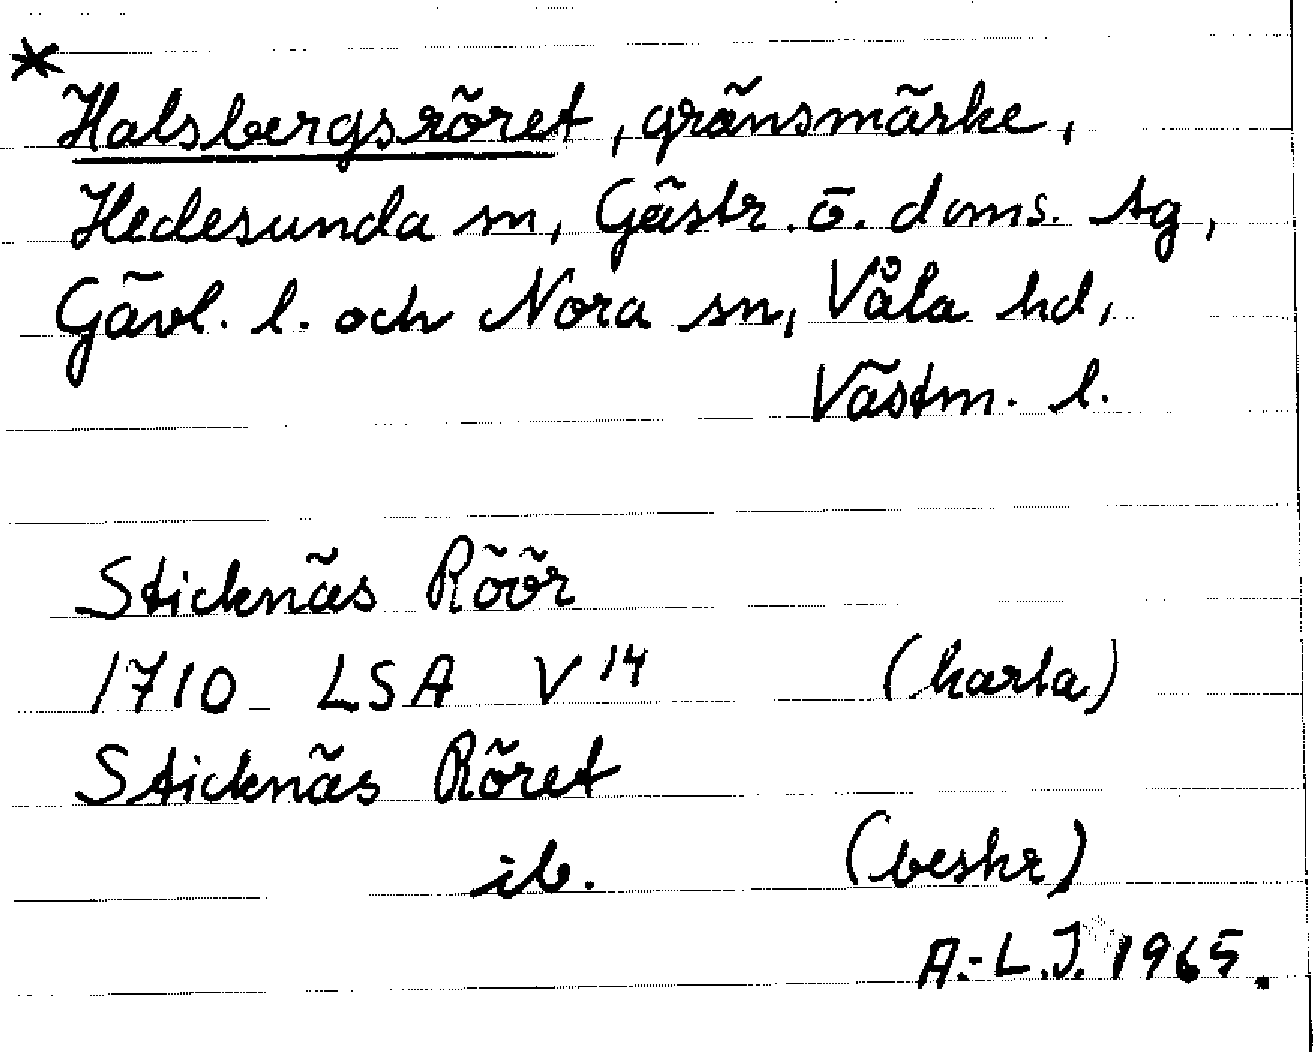 *
Halsbergsröret, gränsmärke,
Hedesunda sn, Gästr. ö. doms. tg,
Gävl. l. och Nora sn, Våla hd,
Västm. l.
Sticknäs Röör
1710 LSA V¹⁴ (karta)
Sticknäs Röret
ib. (beskr)
A.-L.J. 1965.